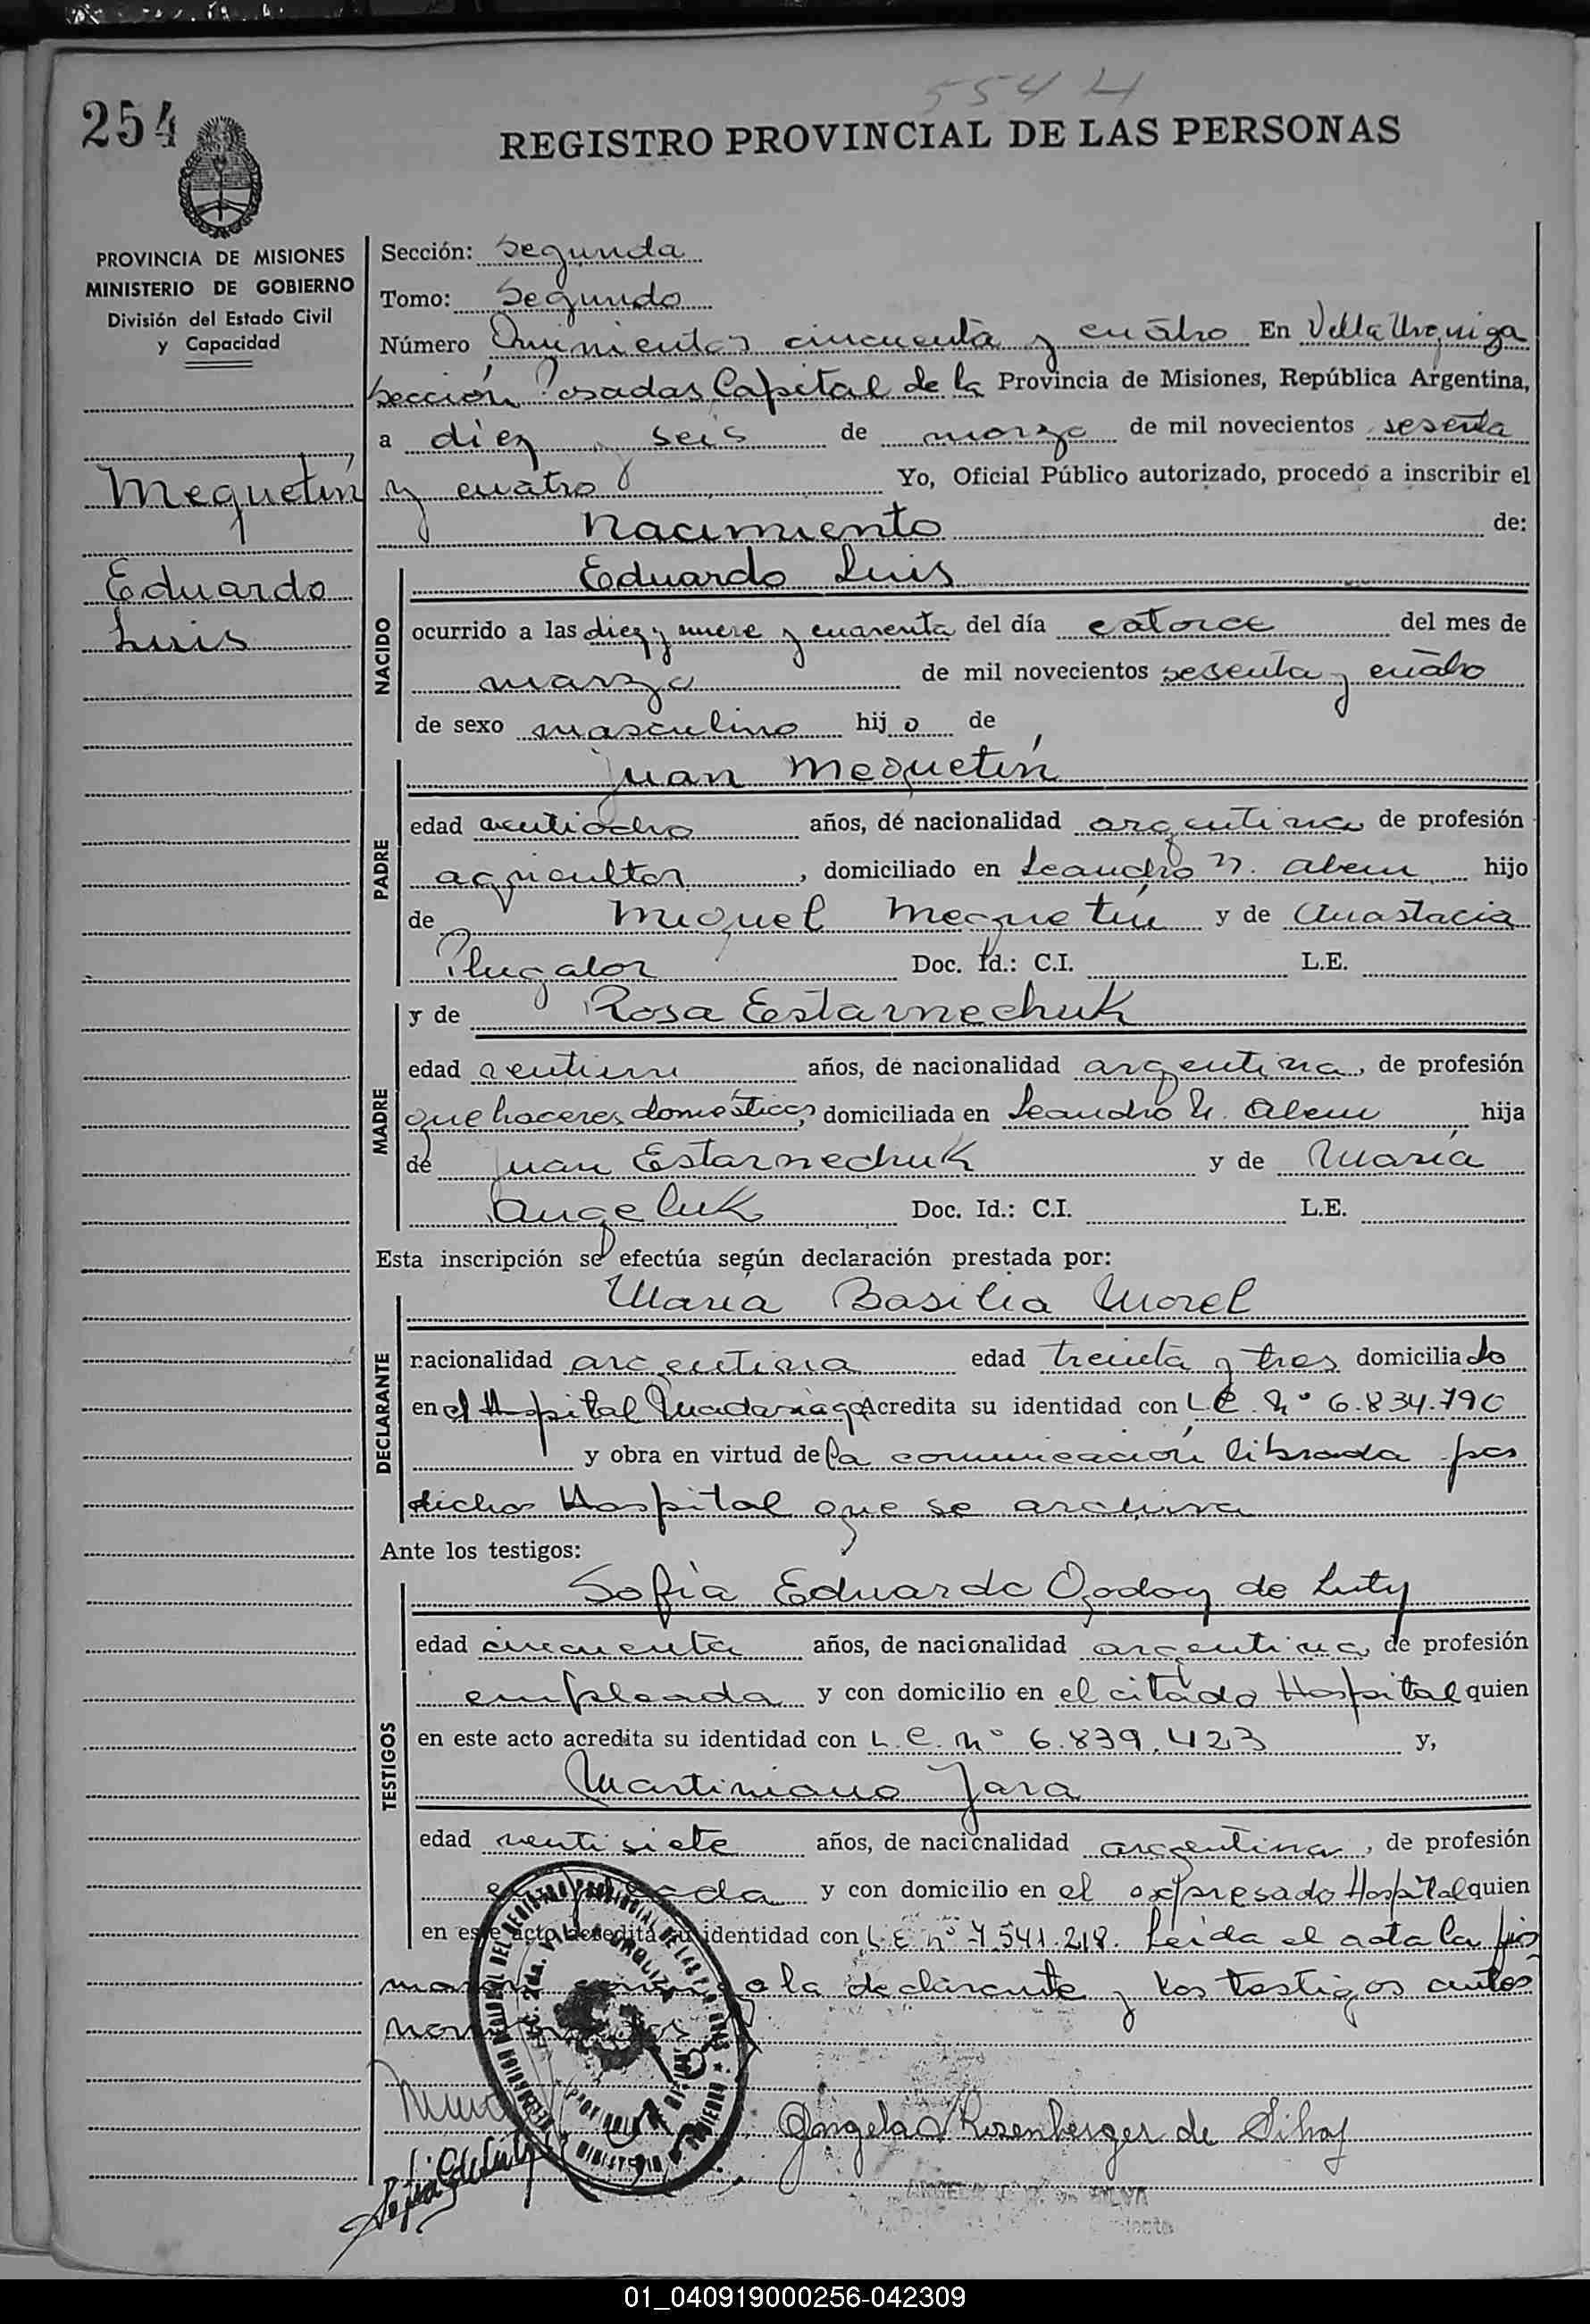 554 4
254
REGISTRO PROVINCIAL DE LAS PERSONAS
PROVINCIA DE MISIONES
MINISTERIO DE GOBIERNO
División del Estado Civil
y Capacidad
Mequetín
Eduardo
Luis
Sección: Segunda
Tomo: Segundo
Número Quinientos cincuenta y cuatro En Villa Urquiza
Sección Posadas Capital de la Provincia de Misiones, República Argentina,
a diez y seis de marzo de mil novecientos sesenta
y cuatro Yo, Oficial Público autorizado, procedo a inscribir el
Nacimiento de:
NACIDO
Eduardo Luis
ocurrido a las diez y nueve y cuarenta del día catorce del mes de
marzo de mil novecientos sesenta y cuatro
de sexo masculino hijo de
PADRE
Juan Mequetín
edad veintiocho años, de nacionalidad argentina de profesión
agricultor, domiciliado en Leandro N. Alem hijo
de Miguel Mequetín y de Anastacia
Plugator Doc. Id.: C.I. L.E.
MADRE
y de Rosa Estarnechuk
edad años, de nacionalidad argentina, de profesión
quehaceres domésticos, domiciliada en Leandro N. Alem hija
de Juan Estarnechuk y de María
Angeluk Doc. Id.: C.I. L.E.
Esta inscripción se efectúa según declaración prestada por:
DECLARANTE
María Basilia Morel
nacionalidad argentina edad treinta y tres domiciliado
en el Hospital Madariaga Acredita su identidad con L.C. Nº 6.834.790
y obra en virtud de la comunicación librada por
dicho Hospital que se archiva
Ante los testigos:
TESTIGOS
Sofía Eduarda Godoy de Luty
edad cincuenta años, de nacionalidad argentina, de profesión
empleada y con domicilio en el citado Hospital quien
en este acto acredita su identidad con L.C. nº 6.839.423 y,
Martiniano Jara
edad ventisiete años, de nacionalidad argentina, de profesión
y con domicilio en el expresado Hospital quien
en este acto acredita su identidad con L.E. nº 7.541.218. Leida el acta la fir
a la declarante y los testigos antes
Angela Rosenberger de Silva
01_040919000256-042309